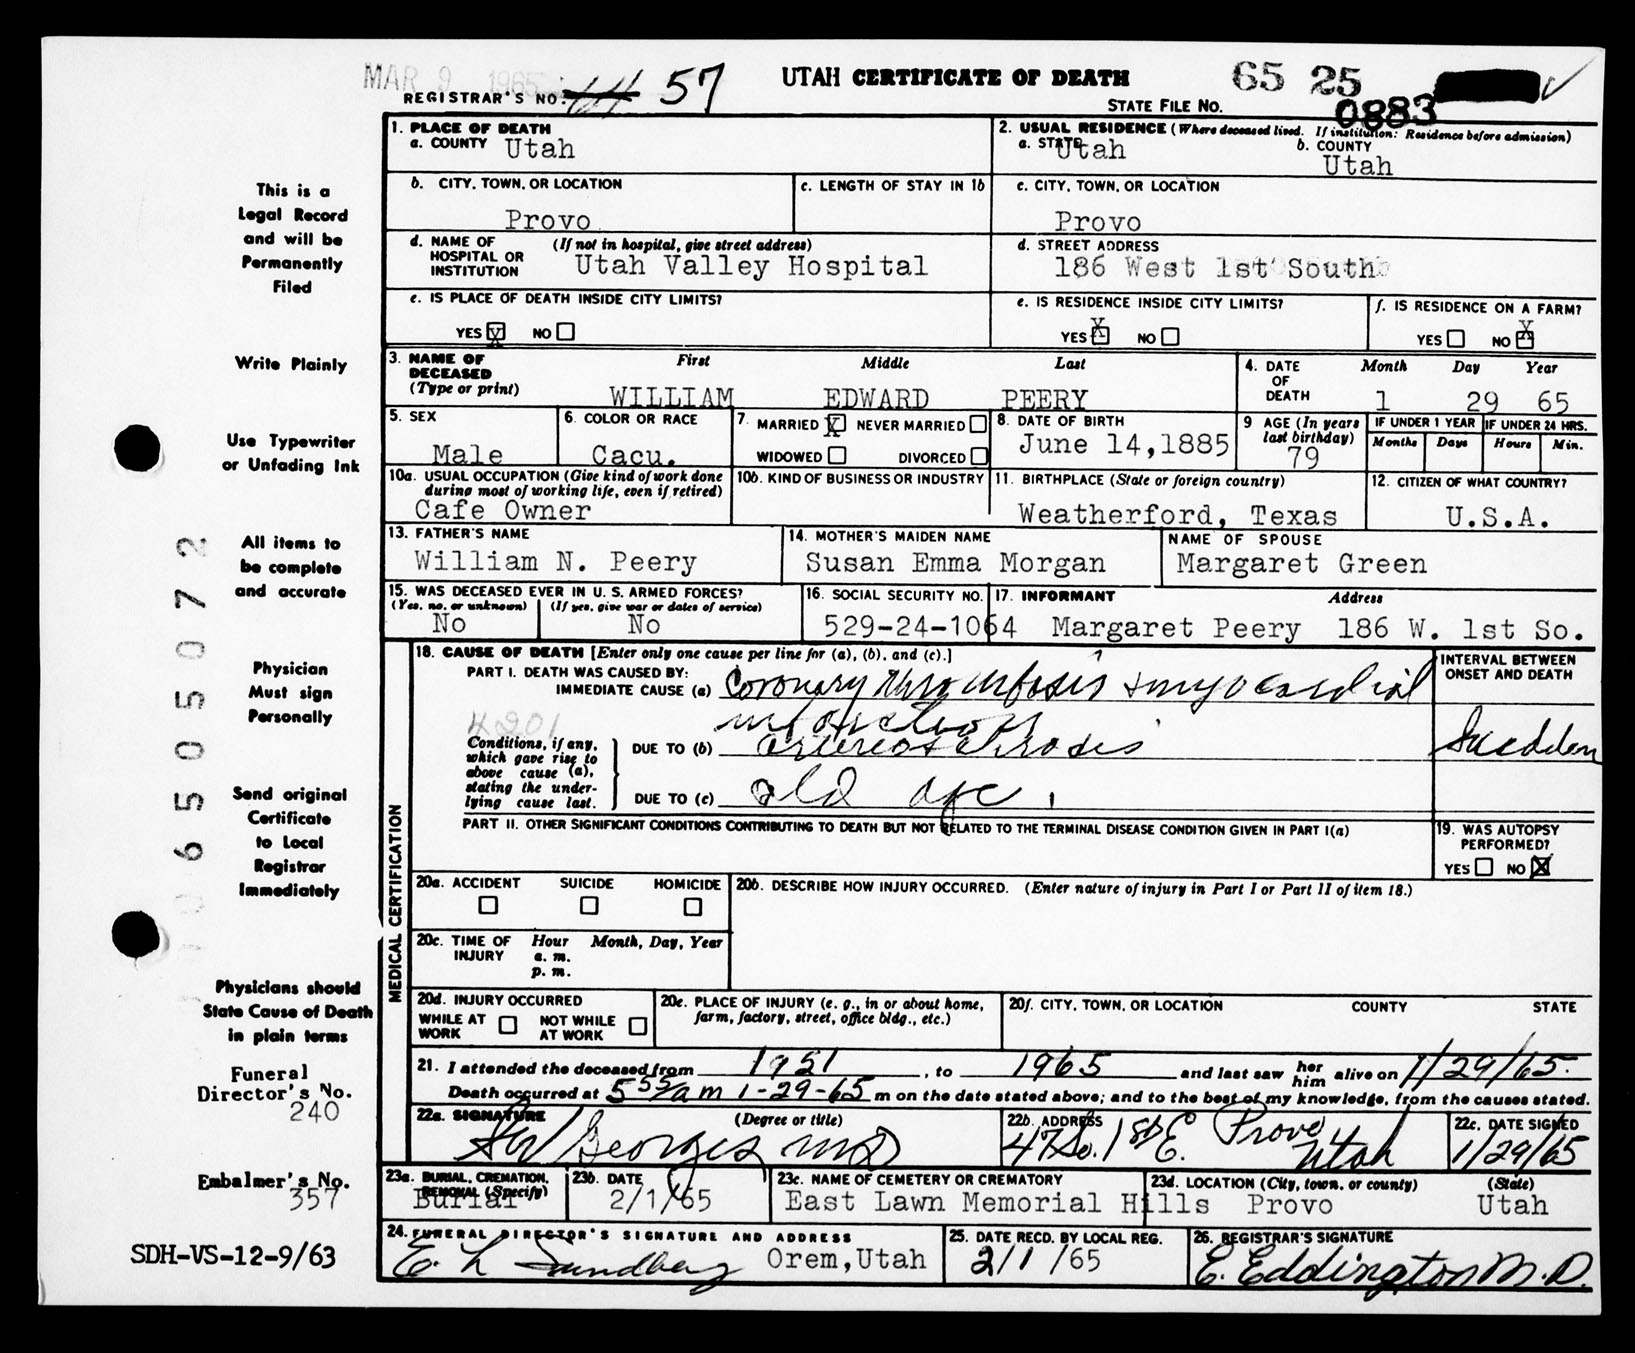 MAR 9 1965
REGISTRAR'S NO. 57
UTAH CERTIFICATE OF DEATH
65 25
STATE FILE NO. 0883
1. PLACE OF DEATH
a. COUNTY Utah
2. USUAL RESIDENCE (Where deceased lived. If institution: Residence before admission)
a. STATE Utah b. COUNTY Utah
b. CITY, TOWN, OR LOCATION Provo
c. LENGTH OF STAY IN 1b
c. CITY, TOWN, OR LOCATION Provo
d. NAME OF HOSPITAL OR INSTITUTION (If not in hospital, give street address) Utah Valley Hospital
d. STREET ADDRESS 186 West 1st South
e. IS PLACE OF DEATH INSIDE CITY LIMITS?
YES X NO
e. IS RESIDENCE INSIDE CITY LIMITS?
YES X NO
f. IS RESIDENCE ON A FARM?
YES NO X
3. NAME OF DECEASED (Type or print) First Middle Last
WILLIAM EDWARD PEERY
4. DATE OF DEATH Month Day Year
1 29 65
5. SEX Male
6. COLOR OR RACE Cacu.
7. MARRIED X NEVER MARRIED
WIDOWED DIVORCED
8. DATE OF BIRTH June 14,1885
9 AGE (In years last birthday) 79
IF UNDER 1 YEAR Months Days
IF UNDER 24 HRS. Hours Min.
10a. USUAL OCCUPATION (Give kind of work done during most of working life, even if retired)
Cafe Owner
10b. KIND OF BUSINESS OR INDUSTRY
11. BIRTHPLACE (State or foreign country)
Weatherford, Texas
12. CITIZEN OF WHAT COUNTRY?
U.S.A.
13. FATHER'S NAME
William N. Peery
14. MOTHER'S MAIDEN NAME
Susan Emma Morgan
NAME OF SPOUSE
Margaret Green
15. WAS DECEASED EVER IN U. S. ARMED FORCES?
(Yes, no, or unknown) (If yes, give war or dates of service)
No No
16. SOCIAL SECURITY NO.
529-24-1064
17. INFORMANT Address
Margaret Peery 186 W. 1st So.
MEDICAL CERTIFICATION
18. CAUSE OF DEATH [Enter only one cause per line for (a), (b), and (c).]
PART I. DEATH WAS CAUSED BY:
IMMEDIATE CAUSE (a) Coronary thrombosis & myocardial
infarction
4201
Conditions, if any, which gave rise to above cause (a), stating the underlying cause last.
DUE TO (b) arteriosclerosis
DUE TO (c) old age.
INTERVAL BETWEEN ONSET AND DEATH
Sudden
PART II. OTHER SIGNIFICANT CONDITIONS CONTRIBUTING TO DEATH BUT NOT RELATED TO THE TERMINAL DISEASE CONDITION GIVEN IN PART I(a)
19. WAS AUTOPSY PERFORMED?
YES NO X
20a. ACCIDENT SUICIDE HOMICIDE
20b. DESCRIBE HOW INJURY OCCURRED. (Enter nature of injury in Part I or Part II of item 18.)
20c. TIME OF INJURY Hour Month, Day, Year
a. m.
p. m.
20d. INJURY OCCURRED
WHILE AT WORK NOT WHILE AT WORK
20e. PLACE OF INJURY (e. g., in or about home, farm, factory, street, office bldg., etc.)
20f. CITY, TOWN, OR LOCATION COUNTY STATE
21. I attended the deceased from 1951, to 1965 and last saw her him alive on 1/29/65.
Death occurred at 5 55/a m 1-29-65 m on the date stated above; and to the best of my knowledge, from the causes stated.
22a. SIGNATURE (Degree or title)
Georges MD
22b. ADDRESS
47 So. 1st E. Provo Utah
22c. DATE SIGNED
1/29/65
23a. BURIAL, CREMATION, REMOVAL (Specify)
Burial
23b. DATE
2/1/65
23c. NAME OF CEMETERY OR CREMATORY
East Lawn Memorial Hills
23d. LOCATION (City, town, or county) (State)
Provo Utah
24. FUNERAL DIRECTOR'S SIGNATURE AND ADDRESS
E. L Sundberg Orem,Utah
25. DATE RECD. BY LOCAL REG.
2/1/65
26. REGISTRAR'S SIGNATURE
E. Eddington M.D.
This is a
Legal Record
and will be
Permanently
Filed
Write Plainly
Use Typewriter
or Unfading Ink
All items to
be complete
and accurate
Physician
Must sign
Personally
Send original
Certificate
to Local
Registrar
Immediately
Physicians should
State Cause of Death
in plain terms
Funeral
Director's No.
240
Embalmer's No.
357
SDH-VS-12-9/63
06505072